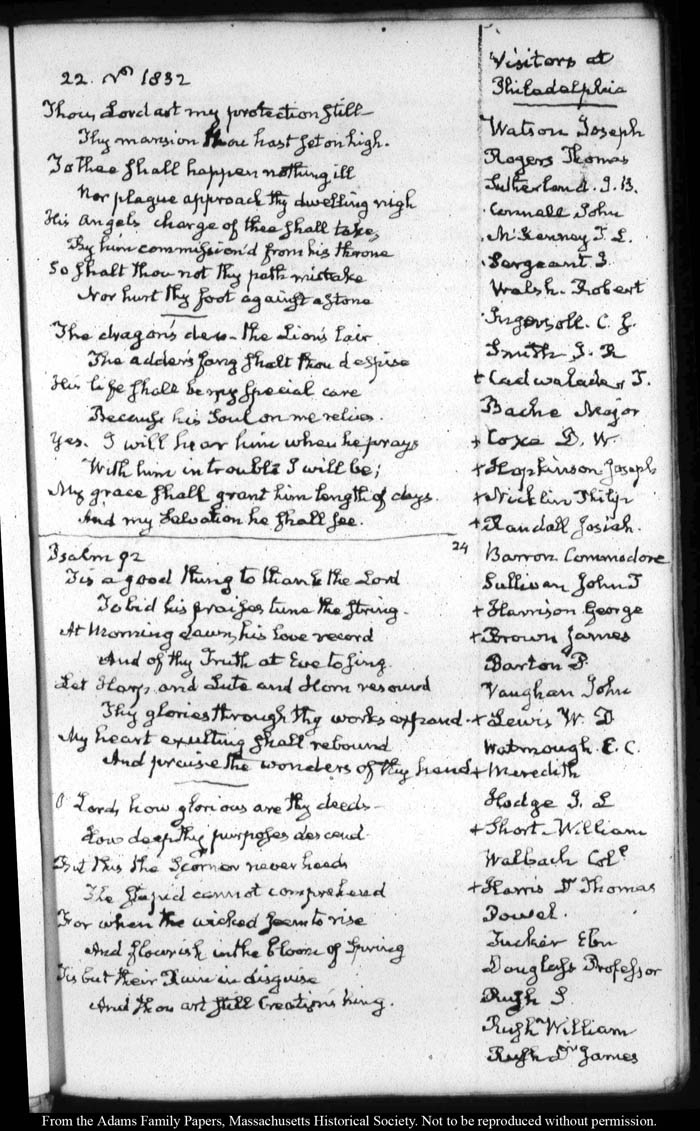 22. Nov 1832
Thou, Lord art my protection still
Thy mansion thou hast set on high.
To thee shall happen nothing ill
Nor plague approach thy dwelling nigh
His Angels charge of thee shall take,
By him commission'd from his throne
So shalt thou not thy path mistake
Nor hurt thy foot against a stone
The dragon's den the Lion's lair
The adder's fang shalt thou despise
His life shall be my special care
Because his Soul on me relies.
Yes. I will hear him when he prays
With him in trouble I will be;
My grace shall grant him length of days.
And my Salvation he shall see.
Psalm 92
Tis a good thing to thank the Lord
To bid his praises tune the string.
At Morning dawn, his love record
And of thy Truth at Eve to sing.
Let Harp, and Lute and Horn resound
Thy glories through thy works expand.
My heart exulting shall rebound
And praise the wonders of thy hand
O Lord, how glorious are thy deeds
How deep thy purposes descend
But this the Scorner never heeds
The Stupid cannot comprehend
For when the wicked seem to rise
And flourish in the bloom of Spring
Tis but their Ruin in disguise
And thou art still Creation's king.
Visitors at
Philadelphia
Watson Joseph
Rogers Thomas
Sutherland. J. B.
Connell John
McKenney T. L.
Sergeant J.
Walsh. Robert
Ingersoll. C. J.
Smith J. R
+ Cadwalader T.
Bache Major
+ Coxe D. W.
+ Hopkinson Joseph
+ Nicklin Philip
+ Randall Josiah.
24 Barron Commodore
Sullivan John T
+ Harrison George
+ Brown James
Barton P.
Vaughan John
+ Lewis W. D
Watmough E. C.
+ Meredith
Hodge J. L
+ Short William
Walbach Coll
+ Harris Dr Thomas
Dowel.
Tucker Eben
Douglass Professor
Rush S.
Rush William
Rush Dr James
From the Adams Family Papers, Massachusetts Historical Society. Not to be reproduced without permission.